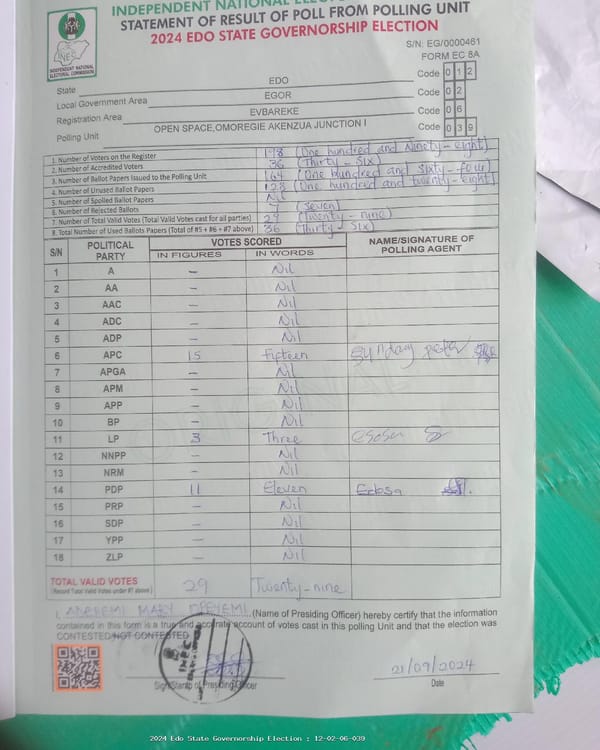 INDEPENDENT NATIONAL
STATEMENT OF RESULT OF POLL FROM POLLING UNIT
2024 EDO STATE GOVERNORSHIP ELECTION
INEC
INDEPENDENT NATIONAL
ELECTORAL COMMISSION
S/N: EG/0000461
FORM EC 8A
State EDO Code 0 1 2
Local Government Area EGOR Code 0 2
Registration Area EVBAREKE Code 0 6
Polling Unit OPEN SPACE,OMOREGIE AKENZUA JUNCTION I Code 0 3 9
1. Number of Voters on the Register 198 (One hundred and Ninety-eight)
2. Number of Accredited Voters 36 (Thirty-Six)
3. Number of Ballot Papers Issued to the Polling Unit 164 (One hundred and Sixty-four)
4. Number of Unused Ballot Papers 128 (One hundred and twenty-eight)
5. Number of Spoiled Ballot Papers Nil
6. Number of Rejected Ballots 7 (Seven)
7. Number of Total Valid Votes (Total Valid Votes cast for all parties) 29 (Twenty-nine)
8. Total Number of Used Ballots Papers (Total of #5 + #6 + #7 above) 36 (Thirty-Six)
S/N POLITICAL PARTY VOTES SCORED NAME/SIGNATURE OF POLLING AGENT
IN FIGURES IN WORDS
1 A – Nil
2 AA – Nil
3 AAC – Nil
4 ADC – Nil
5 ADP – Nil
6 APC 15 Fifteen Sunday peter
7 APGA – Nil
8 APM – Nil
9 APP – Nil
10 BP – Nil
11 LP 3 Three esosa
12 NNPP – Nil
13 NRM – Nil
14 PDP 11 Eleven Edosa
15 PRP – Nil
16 SDP – Nil
17 YPP – Nil
18 ZLP – Nil
TOTAL VALID VOTES 29 Twenty-nine
(Record Total Valid Votes under #7 above)
I, MARY (Name of Presiding Officer) hereby certify that the information
contained in this form is a true and accurate account of votes cast in this polling Unit and that the election was
CONTESTED/NOT CONTESTED
INEC
21/09/2024
Sign/Stamp of Presiding Officer Date
2024 Edo State Governorship Election : 12-02-06-039